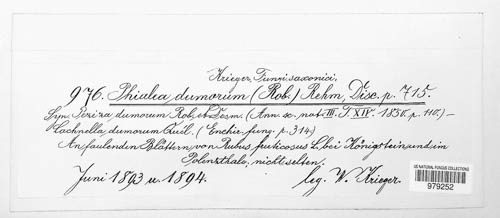 Krieger, Fungi saxonici,
976. Phialea dumorum (Rob.) Rehm, Disc. p. 715.
Syn. Peziza dumorum Rob. et Desm. (Ann. sc. nat. III. T. XIV. 1850. p. 110.) -
Lachnella dumorum Quél. (Enchir. fung. p. 314.)
An faulenden Blättern von Rubus fruticosus L. bei Königstein und im
Polenzthale, nicht selten.
Juni 1893 u. 1894. leg. W. Krieger.
US NATIONAL FUNGUS COLLECTIONS
979252